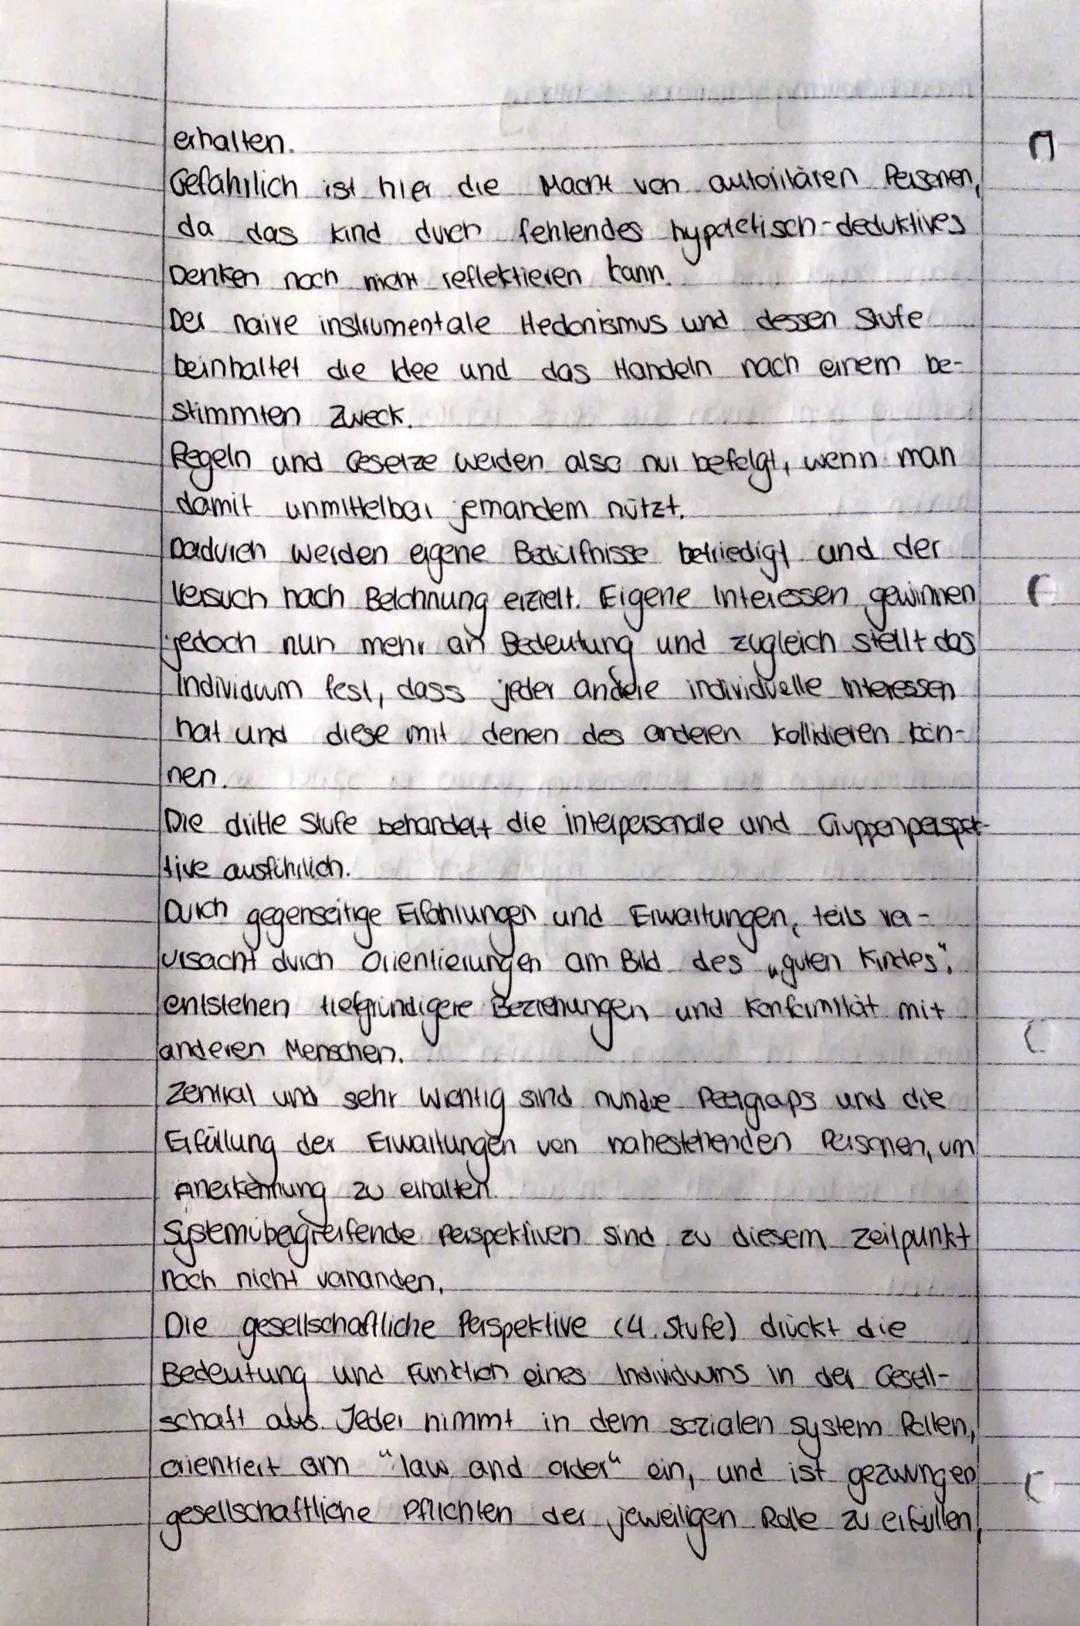 erhalten.
Gefährlich ist hier die Macht von autoritären Personen,
da das Kind durch fehlendes hypotetisch-deduktives
Denken noch nicht reflektieren kann.
Der naive instrumentale Hedonismus und dessen Stufe
beinhaltet die Idee und das Handeln nach einem be-
stimmten Zweck.
Regeln und Gesetze werden also nur befolgt, wenn man
damit unmittelbar jemandem nützt.
Dadurch werden eigene Bedürfnisse befriedigt und der
Versuch nach Belohnung erzielt. Eigene Interessen gewinnen
jedoch nun mehr an Bedeutung und zugleich stellt das
Individuum fest, dass jeder andere individuelle Interessen
hat und diese mit denen des anderen kollidieren kön-
nen.
Die dritte Stufe behandelt die interpersonale und Gruppenperspek-
tive ausführlich.
Durch gegenseitige Erfahrungen und Erwartungen, teils ver-
ursacht durch Orientierungen am Bild des „guten Kindes",
entstehen tiefgründigere Beziehungen und Konformität mit
anderen Menschen.
Zentral und sehr wichtig sind nun die Peergraps und die
Erfüllung der Erwartungen von nahestehenden Personen, um
Anerkennung zu erhalten.
Systemübergreifende Perspektiven sind zu diesem Zeitpunkt
noch nicht vorhanden.
Die gesellschaftliche Perspektive (4. Stufe) drückt die
Bedeutung und Funktion eines Individuums in der Gesell-
schaft aus. Jeder nimmt in dem sozialen System Rollen,
orientiert am "law and order" ein, und ist gezwungen
gesellschaftliche Pflichten der jeweiligen Rolle zu erfüllen,